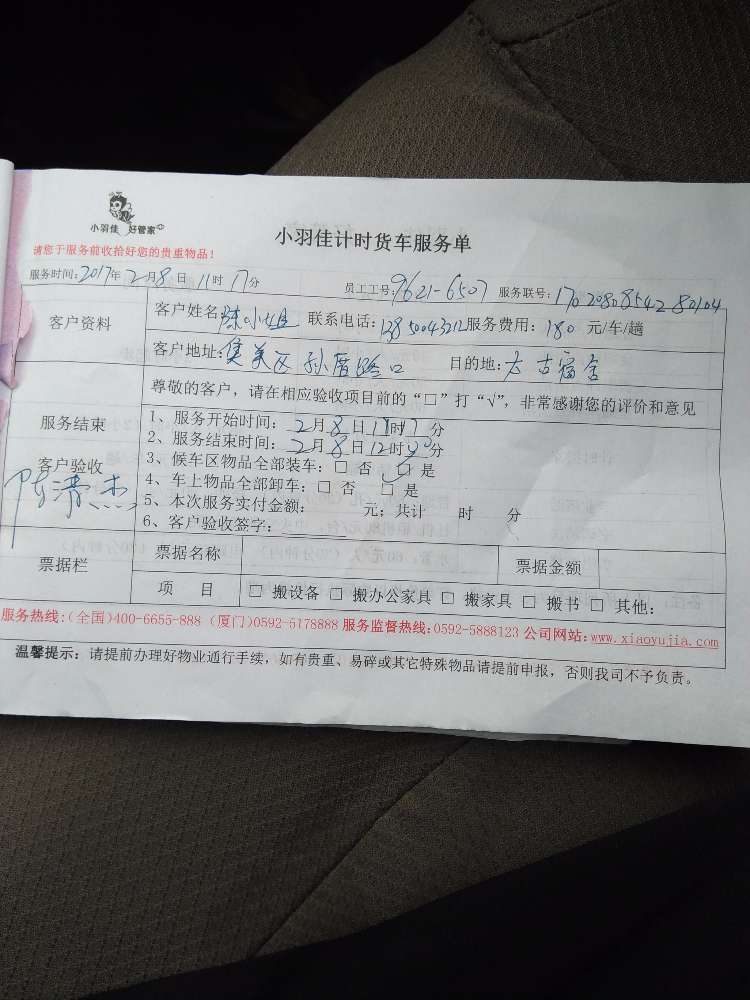 小羽佳 好管家
小羽佳计时货车服务单
请您于服务前收拾好您的贵重物品！
服务时间：2017年2月8日11时17分 员工工号：9621-6507 服务联号：1702080854280104
客户资料
客户姓名：陈小姐 联系电话：13850043212 服务费用：180 元/车/趟
客户地址：集美区孙厝路口 目的地：太古宿舍
尊敬的客户，请在相应验收项目前的“□”打“√”，非常感谢您的评价和意见
服务结束
客户验收
1、服务开始时间：2月8日11时17分
2、服务结束时间：2月8日12时30分
3、候车区物品全部装车：□ 否 □ 是
4、车上物品全部卸车：□ 否 □ 是
5、本次服务实付金额： 元；共计 时 分
6、客户验收签字：
票据栏
票据名称 票据金额
项 目 □ 搬设备 □ 搬办公家具 □ 搬家具 □ 搬书 □ 其他：
服务热线:(全国)400-6655-888 (厦门)0592-5178888 服务监督热线:0592-5888123 公司网站:www.xiaoyujia.com
温馨提示：请提前办理好物业通行手续，如有贵重、易碎或其它特殊物品请提前申报，否则我司不予负责。